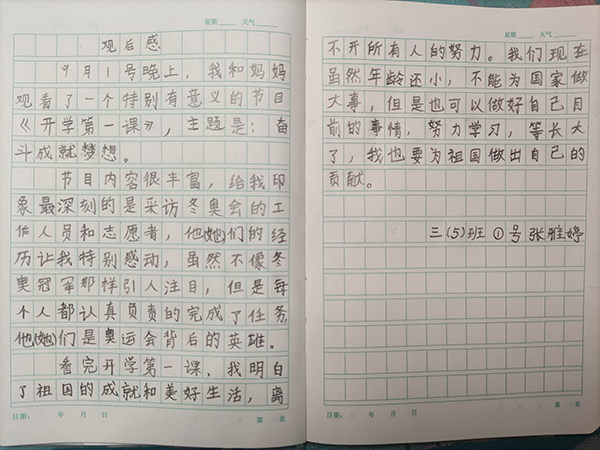 星期 天气
观后感
9月1号晚上，我和妈妈
观看了一个特别有意义的节目
《开学第一课》，主题是：奋
斗成就梦想。
节目内容很丰富，给我印
象最深刻的是采访冬奥会的工
作人员和志愿者，他(她)们的经
历让我特别感动，虽然不像冬
奥冠军那样引人注目，但是每
个人都认真负责的完成了任务，
他(她)们是奥运会背后的英雄。
看完开学第一课、我明白
了祖国的成就和美好生活，离
日期： 年 月 日 第 页
星期 天气
不开所有人的努力。我们现在
虽然年龄还小，不能为国家做
大事，但是也可以做好自己目
前的事情，努力学习，等长大
了，我也要为祖国做出自己的
贡献。
三(5)班 ①号 张雅婷
日期： 年 月 日 第 页